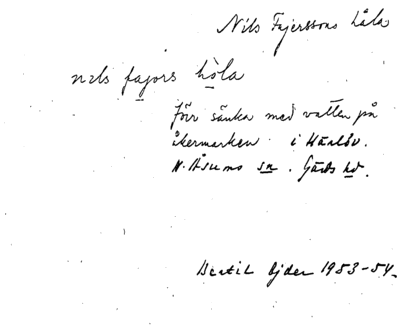 Nils Fajerssons håla
nils fajors hòla
förr sänka med vatten på
åkermarken i Härlöv.
N. Åsums sn. Gärds hd.
Bertil Ejder 1953-54.